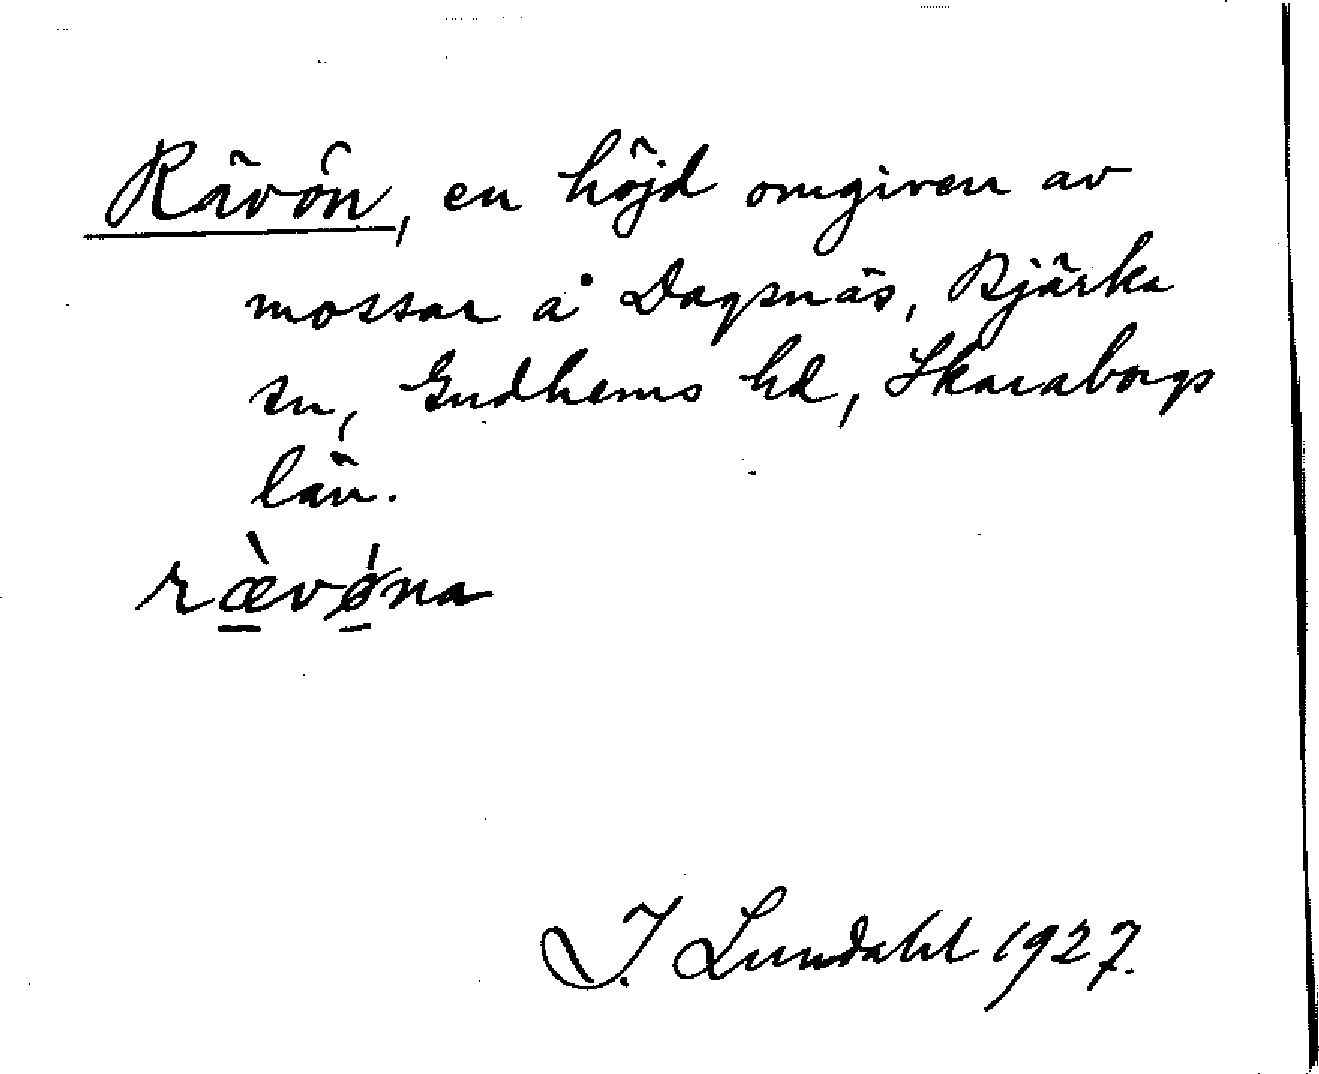 Rävön, en höjd omgiven av
mossar å Dagsnäs, Bjärka
sn, Gudhems hd, Skaraborgs
län.
ræ̀vǿna
J. Lundahl 1927.